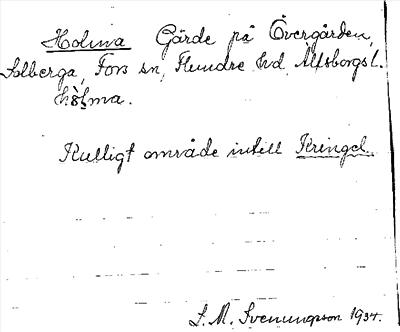 Holma Gärde på Övergården,
Solberga, Fors sn, Flundre hd, Älfsborgs l.
hòlma.
Kulligt område intill Kringel.
S. M. Svenungsson 1934.